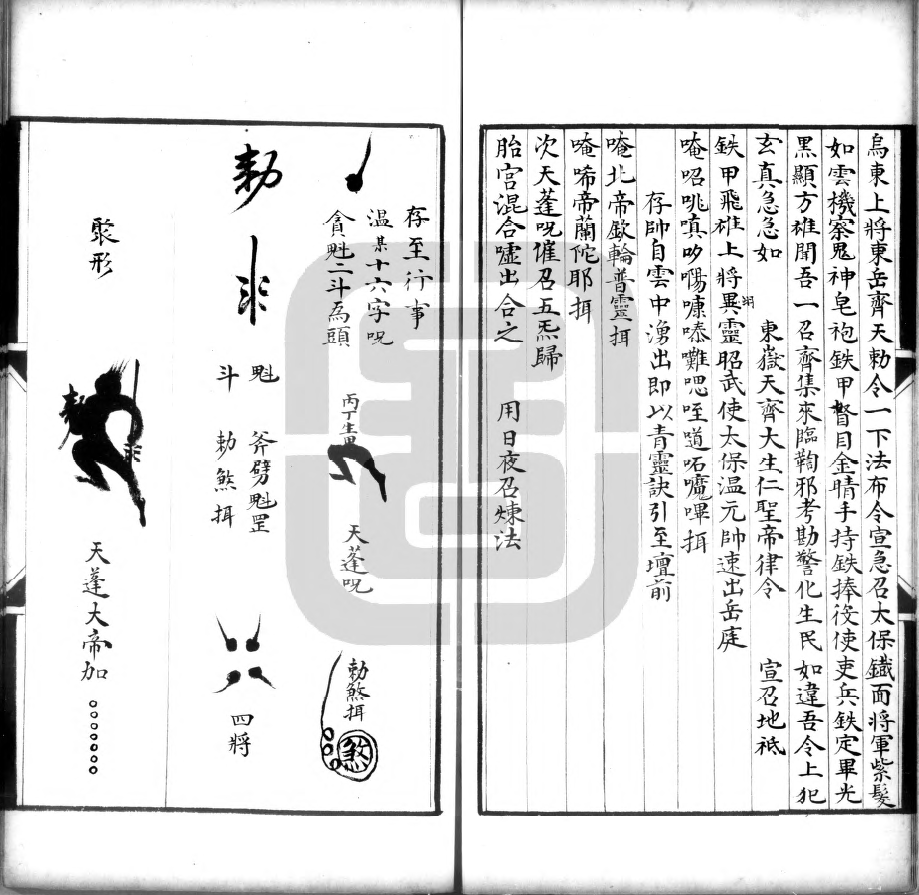 烏東上將東岳齊天勅令一下法布令宣急召太保鐵面將軍紫髮
如雲機察鬼神皂袍鉄甲督目金睛手持鉄捧役使吏兵鉄定畢光
黑顯方雄聞吾一召齊集來臨鞫邪考勘警化生民如違吾令上犯
玄真急急如 東嶽天齊大生仁聖帝律令 宣召地祗
鉄甲飛雄上將翊異靈昭武使太保温元帥速出岳庭
唵呾𠯋嗔吵啺嗛嗏囄嗯咥道𠯢嚰嗶揖
存帥自雲中湧出即以青靈訣引至壇前
唵北帝欽輪普靈揖
唵唏帝蘭陀耶揖
次天蓬咒催召五炁歸
胎宫混合噓出合之 用日夜召煉法
存至行事
温某十六字咒
貪魁二斗為頭
丙丁生男
天蓬咒
勅煞揖
煞
勅
魁 斧劈魁罡
斗 勅煞揖
四將
聚形
勅
天蓬大帝加